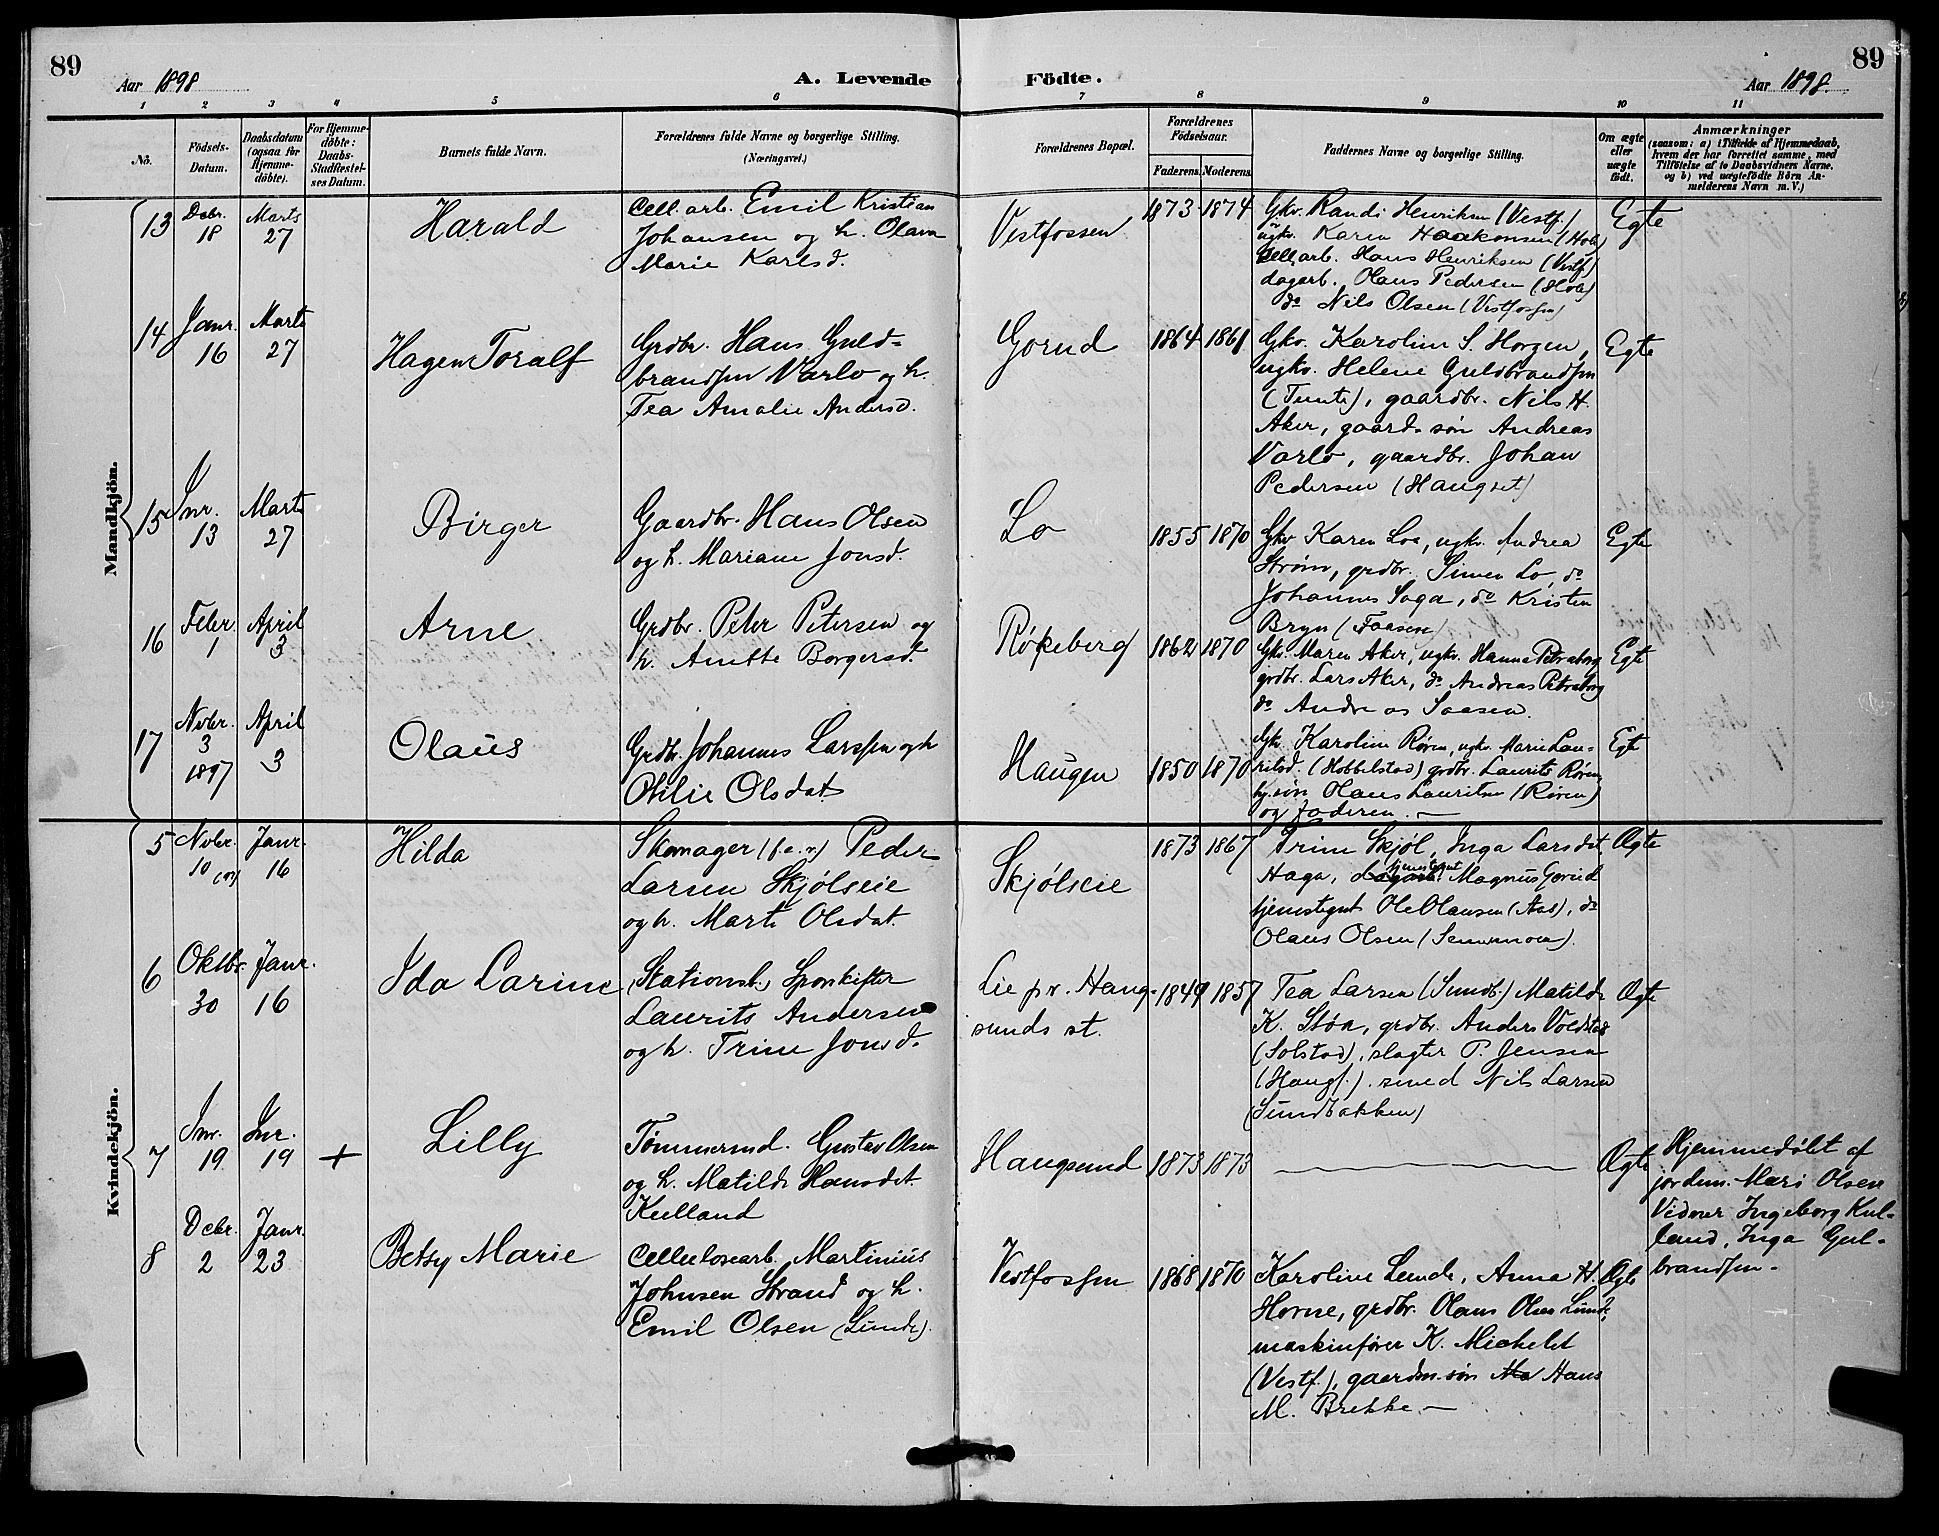 89
Aar 1898
A. Levende
Födte.
Aar 1898.
89
1 2 3 4 5 6 7 8 9 10 11
No.
Födsels-
Datum.
Daabsdatum
(ogsaa for
Hjemme-
döbte).
For Hjemme-
döbte:
Daabs-
Stadfæstel-
ses Datum.
Barnets fulde Navn.
Forældrenes fulde Navne og borgerlige Stilling.
(Næringsvei.)
Forældrenes Bopæl.
Forældrenes
Födselsaar.
Faderens.
Moderens.
Faddernes Navne og borgerlige Stilling.
Om ægte
eller
uægte
födt.
Anmærkninger
(saasom: a) i Tilfælde af Hjemmedaab,
hvem der har forrettet samme, med
Tilföielse af to Daabsvidners Navne,
og b) ved uægtefödte Börn An-
melderens Navn m. V.)
Mandkjön.
13
Debr.
18
Marts
27
Harald
Cell. arb. Emil Kristian
Johansen og h. Olava
Marie Karlsd.
Vestfossen
1873
1874
Gkv. Randi Henriksen (Vestf.)
ugkv. Karen Haakonsen (Hob)
Cell. arb. Hans Henriksen (Vestf)
dagarb. Olaus Pedersen (Hob)
do Nils Olsen (Vestfossen)
Egte
14
Janr.
16
Marts
27
Hagen Toralf
Grdbr. Hans Guld-
brandsen Varlo og h.
Tea Amalie Andersd.
Gorud
1864
1861
Gkv. Karoline S. Horgen,
ugkv. Helene Guldbrandsen
(Tunte), gaardbr. Nils H.
Aker, gaard. søn Andreas
Varlo, gaardbr. Johan
Pedersen (Haugset)
Egte
15
Jnr.
13
Marts
27
Birger
Gaardbr. Hans Olsen
og h. Mariane Jonsd.
Lo
1855
1870
Gkv Karen Loe, ugkv. Andrea
Strøm, grdbr. Simen Lo, do
Johannes Saga, do Kristen
Bryn (Faasen)
Egte
16
Febr.
1
April
3
Arne
Grdbr. Peter Petersen og
h. Anette Borgersd.
Røkeberg
1862
1870
Gkv. Maren Aker, ugkv. Hanna Petraborg
grdbr. Lars Aker, do Andreas Petraborg
do Andreas Saasen.
Egte
17
Novbr.
3
1897
April
3
Olaus
Grdbr. Johannes Larssen og h
Otilie Olsdat.
Haugen
1850
1870
Gkv. Karoline Røren, ugkv. Marie Lau-
ritsd. (Hobbelstad) grdbr. Laurits Røren,
søn Olaus Lauritsen (Røren)
og faderen. —
Egte
Kvindekjön.
5
Novbr.
10 (97)
Janr.
16
Hilda
Skomager (f. a. v.) Peder
Larsen Skjølseie
og h. Marte Olsdat.
Skjølseie
1873
1867
Trine Skjøl, Inga Larsdat.
Haga, tjenestegut Magnus Gorud
tjenstegut Ole Olausen (Aas), do
Olaus Olsen (Semsmoen).
Ægte
6
Oktbr.
30
Janr.
16
Ida Larine
Stationsb. Sporskifter
Laurits Andersen
og h. Trine Jonsd.
Lie pr. Haug-
sunds st.
1849
1857
Tea Larsen (Sundb.) Matilde
K. Støa, grdbr. Anders Voldstad
(Solstad), slagter P. Jensen
(Haugs.), smed Nils Larsen
(Sundbakken)
Ægte
7
Jnr.
19
Jnr.
19
+
Lilly
Tømmermd. Gustav Olsen
og h. Matilde Hansdat.
Kulland
Haugsund
1873
1873
Ægte
Hjemmedøbt af
jordem. Mari Olsen
Vidner Ingeborg Kul-
land, Inga Gul-
brandsen.
8
Debr.
2
Janr.
23
Betsy Marie
Cellulosearb. Martinius
Johnsen Strand og h.
Emil Olsen (Lunde).
Vestfossen
1868
1870
Karoline Lunde, Anna H.
Horne, grdbr. Olaus Olsen Lunde,
maskinfører K. Michelet
(Vestf.), gaardm. søn Hans
M. Brekke. —
Ægte